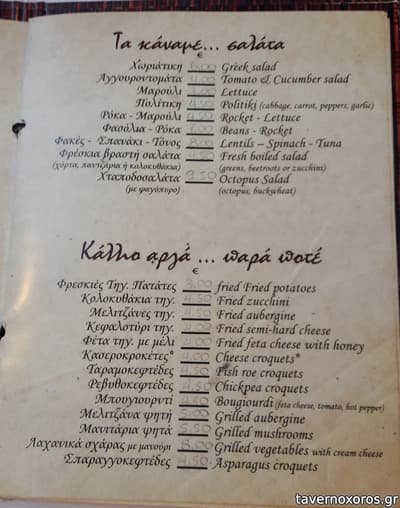 Τα κάναμε... σαλάτα
€
Χωριάτικη 6,00 Greek salad
Αγγουροντομάτα 4,00 Tomato & Cucumber salad
Μαρούλι 4,00 Lettuce
Πολίτικη 4,50 Politiki (cabbage, carrot, peppers, garlic)
Ρόκα - Μαρούλι 4,50 Rocket - Lettuce
Φασόλια - Ρόκα 6,00 Beans - Rocket
Φακές - Σπανάκι - Τόνος 8,00 Lentils – Spinach - Tuna
Φρέσκια βραστή σαλάτα 4,50 Fresh boiled salad
(χόρτα, παντζάρια ή κολοκυθάκια) (greens, beetroots or zucchini)
Χταποδοσαλάτα 9,50 Octopus Salad
(με φαγόπυρο) (octopus, buckwheat)
Κάλλιο αργά ... παρά ποτέ
€
Φρεσκιές Τηγ. Πατάτες 3,00 fried Fried potatoes
Κολοκυθάκια τηγ. 4,50 Fried zucchini
Μελιτζάνες τηγ. 4,50 Fried aubergine
Κεφαλοτύρι τηγ. 4,00 Fried semi-hard cheese
Φέτα τηγ. με μέλι 4,00 Fried feta cheese with honey
Κασεροκροκέτες* 4,00 Cheese croquets*
Ταραμοκεφτέδες 4,50 Fish roe croquets
Ρεβυθοκεφτέδες 4,50 Chickpea croquets
Μπουγιουρντί 4,60 Bougiourdi (feta cheese, tomato, hot pepper)
Μελιτζάνα ψητή 5,00 Grilled aubergine
Μανιτάρια ψητά 5,50 Grilled mushrooms
Λαχανικά σχάρας με μανούρι 8,00 Grilled vegetables with cream cheese
Σπαραγγοκεφτέδες 4,50 Asparagus croquets
tavernoxoros.gr